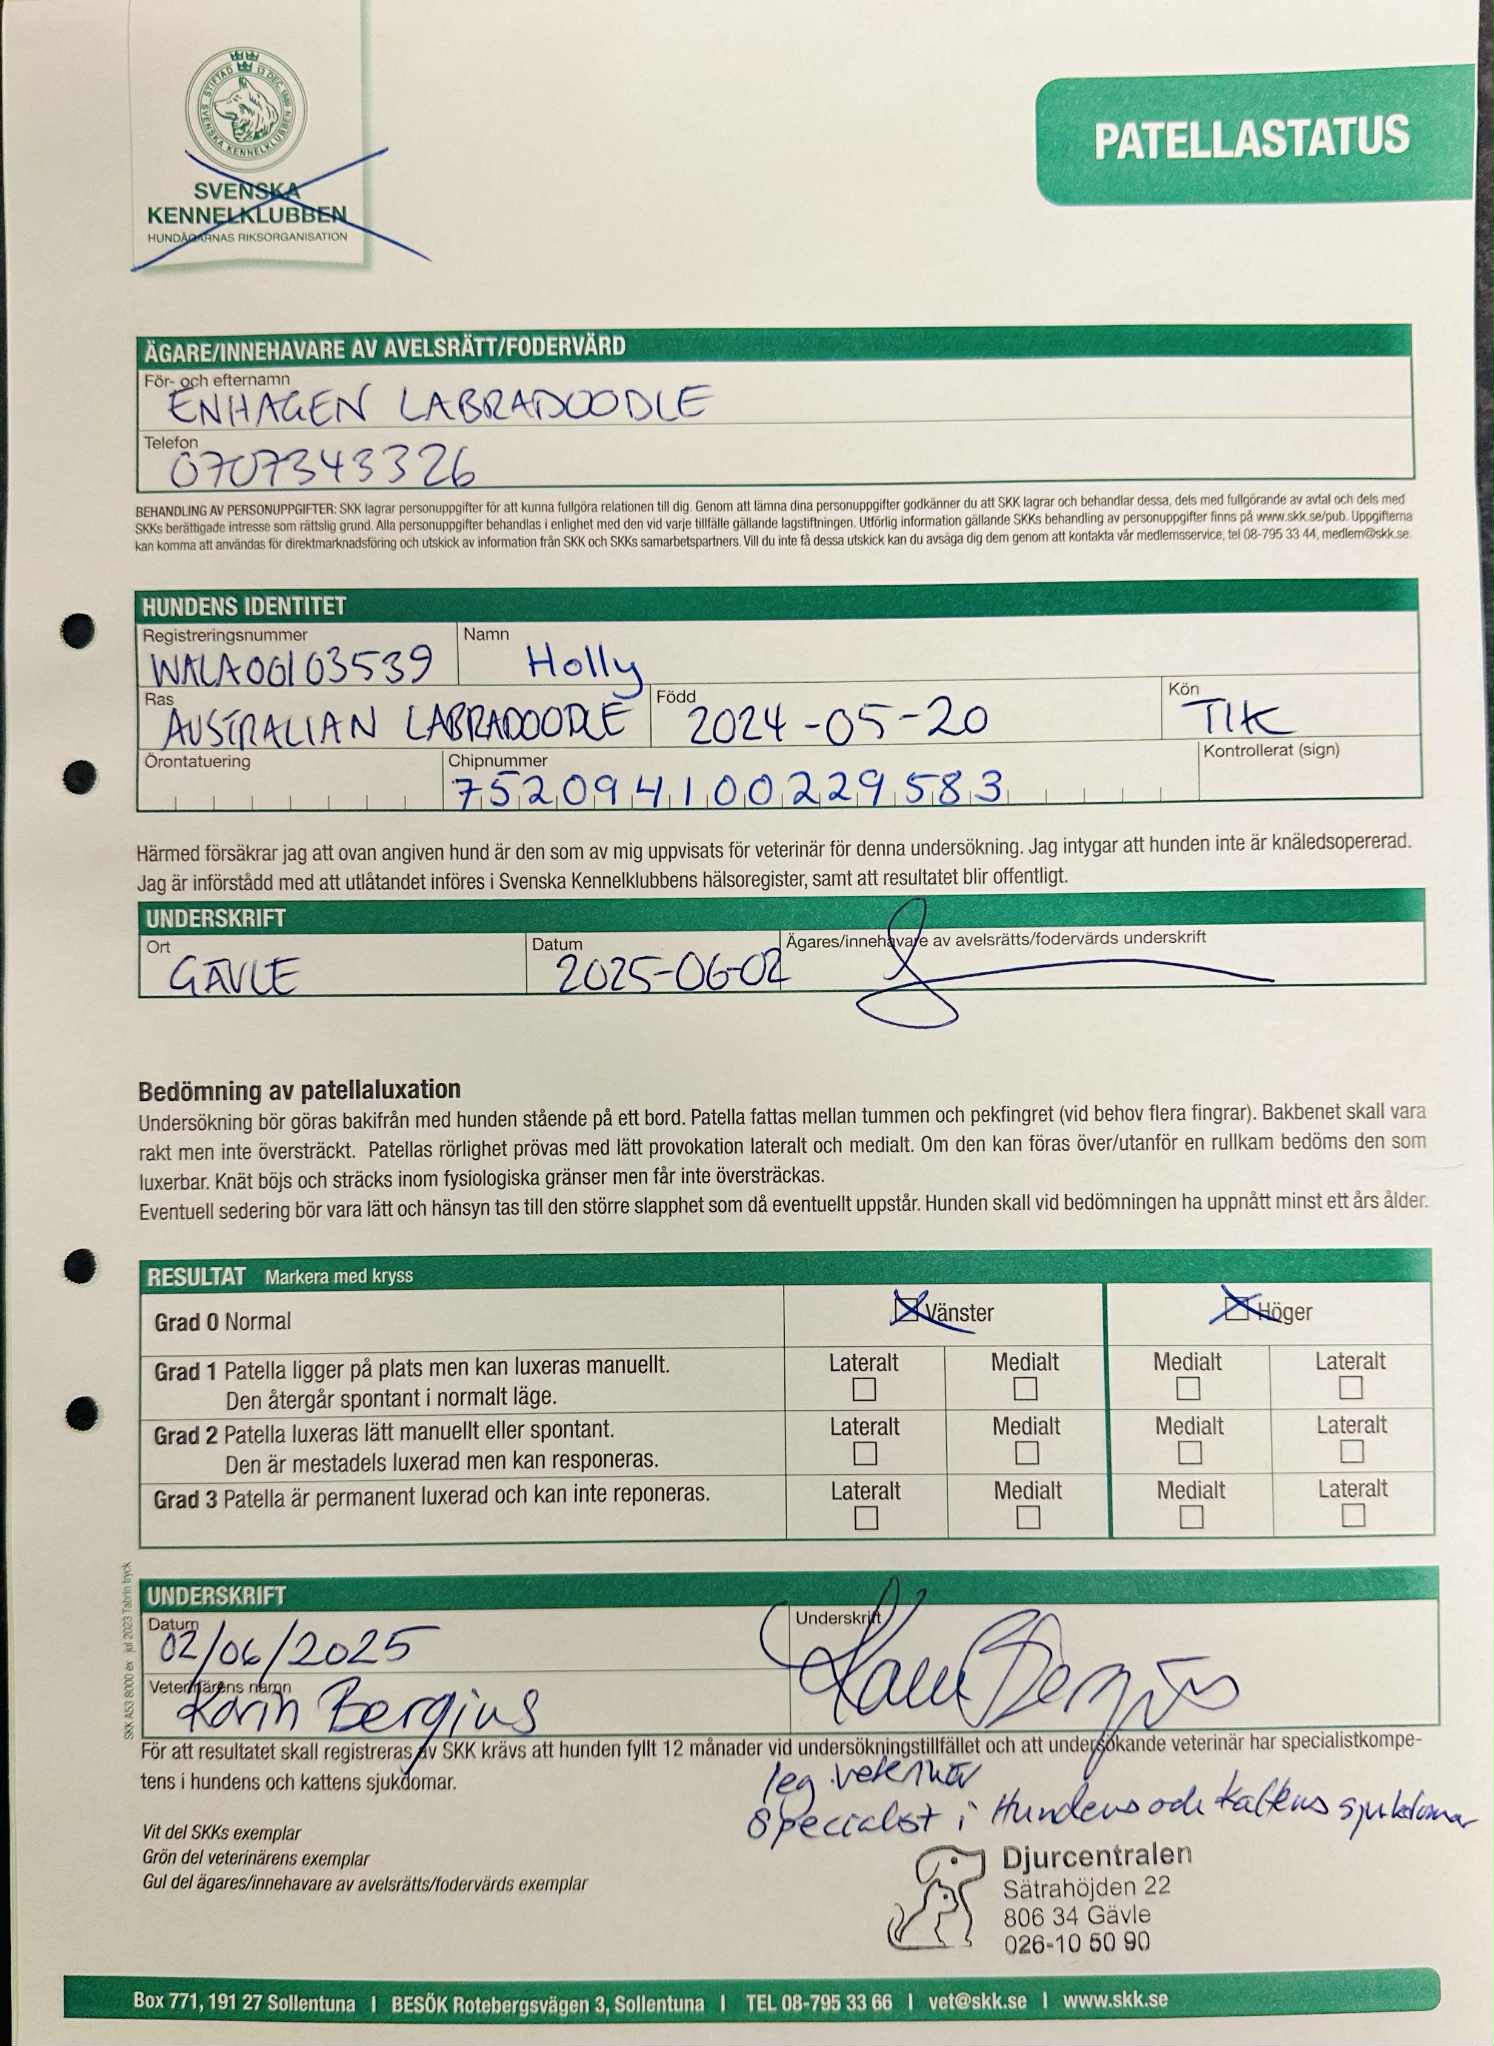 STIFTAD 13 DEC. 1889
SVENSKA KENNELKLUBBEN
SVENSKA
KENNELKLUBBEN
HUNDÄGARNAS RIKSORGANISATION
PATELLASTATUS
ÄGARE/INNEHAVARE AV AVELSRÄTT/FODERVÄRD
För- och efternamn
ENHAGEN LABRADOODLE
Telefon
0707343326
BEHANDLING AV PERSONUPPGIFTER: SKK lagrar personuppgifter för att kunna fullgöra relationen till dig. Genom att lämna dina personuppgifter godkänner du att SKK lagrar och behandlar dessa, dels med fullgörande av avtal och dels med
SKKs berättigade intresse som rättslig grund. Alla personuppgifter behandlas i enlighet med den vid varje tillfälle gällande lagstiftningen. Utförlig information gällande SKKs behandling av personuppgifter finns på www.skk.se/pub. Uppgifterna
kan komma att användas för direktmarknadsföring och utskick av information från SKK och SKKs samarbetspartners. Vill du inte få dessa utskick kan du avsäga dig dem genom att kontakta vår medlemsservice, tel 08-795 33 44, medlem@skk.se.
HUNDENS IDENTITET
Registreringsnummer Namn
WALA00103539 Holly
Ras Född Kön
AUSTRALIAN LABRADOODLE 2024-05-20 TIK
Örontatuering Chipnummer Kontrollerat (sign)
752094100229583
Härmed försäkrar jag att ovan angiven hund är den som av mig uppvisats för veterinär för denna undersökning. Jag intygar att hunden inte är knäledsopererad.
Jag är införstådd med att utlåtandet införes i Svenska Kennelklubbens hälsoregister, samt att resultatet blir offentligt.
UNDERSKRIFT
Ort Datum Ägares/innehavare av avelsrätts/fodervärds underskrift
GÄVLE 2025-06-02
Bedömning av patellaluxation
Undersökning bör göras bakifrån med hunden stående på ett bord. Patella fattas mellan tummen och pekfingret (vid behov flera fingrar). Bakbenet skall vara
rakt men inte översträckt. Patellas rörlighet prövas med lätt provokation lateralt och medialt. Om den kan föras över/utanför en rullkam bedöms den som
luxerbar. Knät böjs och sträcks inom fysiologiska gränser men får inte översträckas.
Eventuell sedering bör vara lätt och hänsyn tas till den större slapphet som då eventuellt uppstår. Hunden skall vid bedömningen ha uppnått minst ett års ålder.
RESULTAT Markera med kryss
Grad 0 Normal Vänster Höger
Grad 1 Patella ligger på plats men kan luxeras manuellt. Lateralt Medialt Medialt Lateralt
Den återgår spontant i normalt läge.
Grad 2 Patella luxeras lätt manuellt eller spontant. Lateralt Medialt Medialt Lateralt
Den är mestadels luxerad men kan responeras.
Grad 3 Patella är permanent luxerad och kan inte reponeras. Lateralt Medialt Medialt Lateralt
UNDERSKRIFT
Datum Underskrift
02/06/2025 Karin Bergius
Veterinärens namn
Karin Bergius
För att resultatet skall registreras av SKK krävs att hunden fyllt 12 månader vid undersökningstillfället och att undersökande veterinär har specialistkompe-
tens i hundens och kattens sjukdomar.
leg. veterinär
Specialist i Hundens och kattens sjukdomar
Vit del SKKs exemplar
Grön del veterinärens exemplar
Gul del ägares/innehavare av avelsrätts/fodervärds exemplar
Djurcentralen
Sätrahöjden 22
806 34 Gävle
026-10 50 90
SKK A53 8000 ex jul 2023 Tabrin tryck
Box 771, 191 27 Sollentuna | BESÖK Rotebergsvägen 3, Sollentuna | TEL 08-795 33 66 | vet@skk.se | www.skk.se